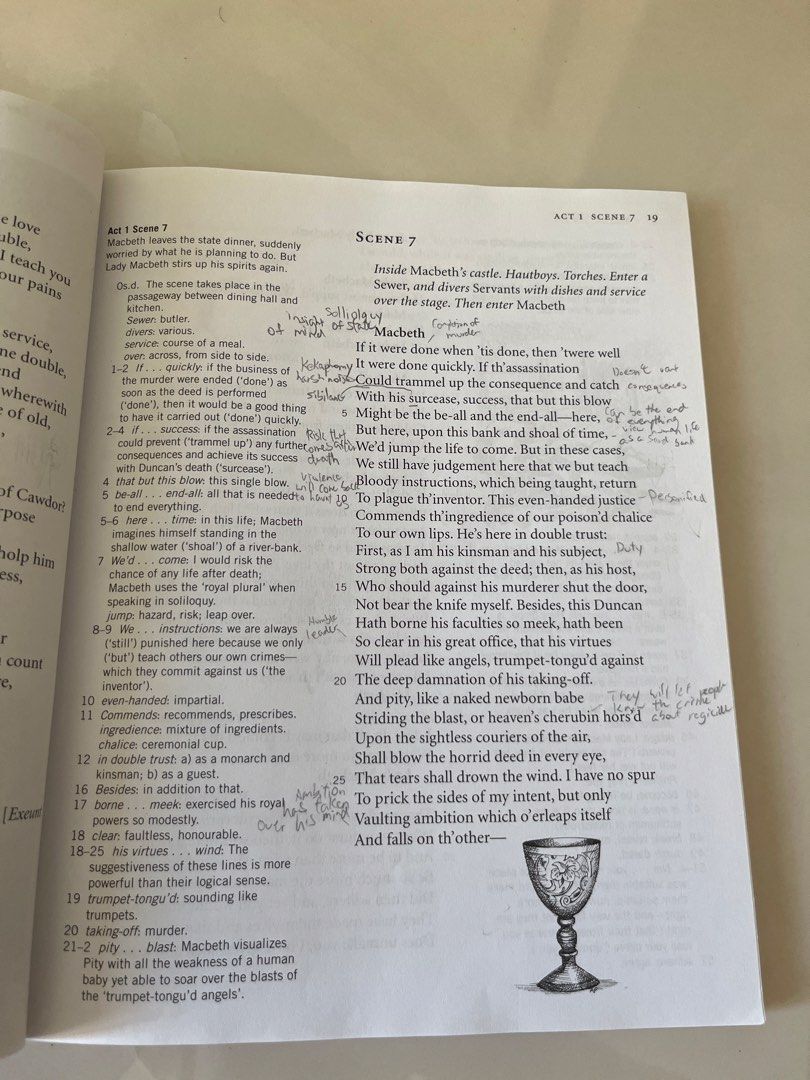 e love
uble,
I teach you
our pains
service,
ne double,
nd
wherewith
e of old,
,
of Cawdor?
rpose
holp him
ess,
r
count
re,
[Exeunt
ACT 1 SCENE 7 19
Act 1 Scene 7
Macbeth leaves the state dinner, suddenly
worried by what he is planning to do. But
Lady Macbeth stirs up his spirits again.
0s.d. The scene takes place in the
passageway between dining hall and
kitchen.
Sewer: butler.
divers: various.
service: course of a meal.
over: across, from side to side.
1–2 If . . . quickly: if the business of
the murder were ended (‘done’) as
soon as the deed is performed
(‘done’), then it would be a good thing
to have it carried out (‘done’) quickly.
2–4 if . . . success: if the assassination
could prevent (‘trammel up’) any further
consequences and achieve its success
with Duncan’s death (‘surcease’).
4 that but this blow: this single blow.
5 be-all . . . end-all: all that is needed
to end everything.
5–6 here . . . time: in this life; Macbeth
imagines himself standing in the
shallow water (‘shoal’) of a river-bank.
7 We’d . . . come: I would risk the
chance of any life after death;
Macbeth uses the ‘royal plural’ when
speaking in soliloquy.
jump: hazard, risk; leap over.
8–9 We . . . instructions: we are always
(‘still’) punished here because we only
(‘but’) teach others our own crimes—
which they commit against us (‘the
inventor’).
10 even-handed: impartial.
11 Commends: recommends, prescribes.
ingredience: mixture of ingredients.
chalice: ceremonial cup.
12 in double trust: a) as a monarch and
kinsman; b) as a guest.
16 Besides: in addition to that.
17 borne . . . meek: exercised his royal
powers so modestly.
18 clear: faultless, honourable.
18–25 his virtues . . . wind: The
suggestiveness of these lines is more
powerful than their logical sense.
19 trumpet-tongu’d: sounding like
trumpets.
20 taking-off: murder.
21–2 pity . . . blast: Macbeth visualizes
Pity with all the weakness of a human
baby yet able to soar over the blasts of
the ‘trumpet-tongu’d angels’.
Solliloquy
insight of state
of mind
Kakaphony
harsh noise
sibilance
Risk that
comes after
death
violence
will come back
to haunt
us
Humble
leader
Ambition
has taken
over his mind
SCENE 7
Inside Macbeth’s castle. Hautboys. Torches. Enter a
Sewer, and divers Servants with dishes and service
over the stage. Then enter Macbeth
Macbeth
of
murder
If it were done when ’tis done, then ’twere well
It were done quickly. If th’assassination
Doesn't want
Could trammel up the consequence and catch
consequences
With his surcease, success, that but this blow
5 Might be the be-all and the end-all—here,
Can be the end
of everything
But here, upon this bank and shoal of time,
view human life
as a sand bank
We’d jump the life to come. But in these cases,
We still have judgement here that we but teach
Bloody instructions, which being taught, return
10 To plague th’inventor. This even-handed justice
Personified
Commends th’ingredience of our poison’d chalice
To our own lips. He’s here in double trust:
First, as I am his kinsman and his subject,
Duty
Strong both against the deed; then, as his host,
15 Who should against his murderer shut the door,
Not bear the knife myself. Besides, this Duncan
Hath borne his faculties so meek, hath been
So clear in his great office, that his virtues
Will plead like angels, trumpet-tongu’d against
20 The deep damnation of his taking-off.
And pity, like a naked newborn babe
They will let people
know the crime
Striding the blast, or heaven’s cherubin hors’d
about regicide
Upon the sightless couriers of the air,
Shall blow the horrid deed in every eye,
25 That tears shall drown the wind. I have no spur
To prick the sides of my intent, but only
Vaulting ambition which o’erleaps itself
And falls on th’other—